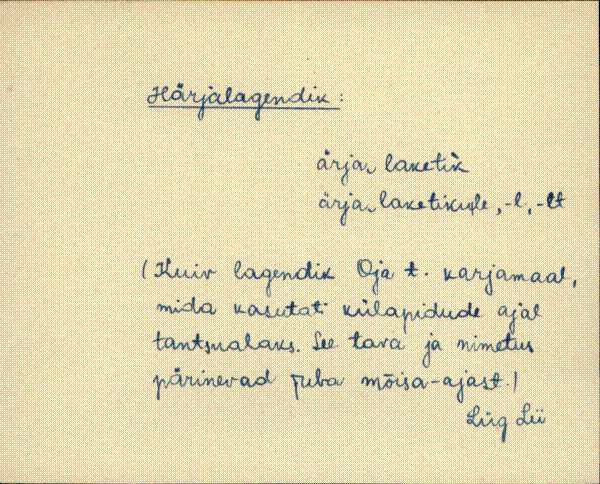 Härjalagendik:
ärja, laketik
ärja, laketikule, -l, -lt
(Kuiv lagendik Oja t. karjamaal,
mida kasutati külapidude ajal
tantsualaks. See tava ja nimetus
pärinevad juba mõisa-ajast.)
Liig Lii